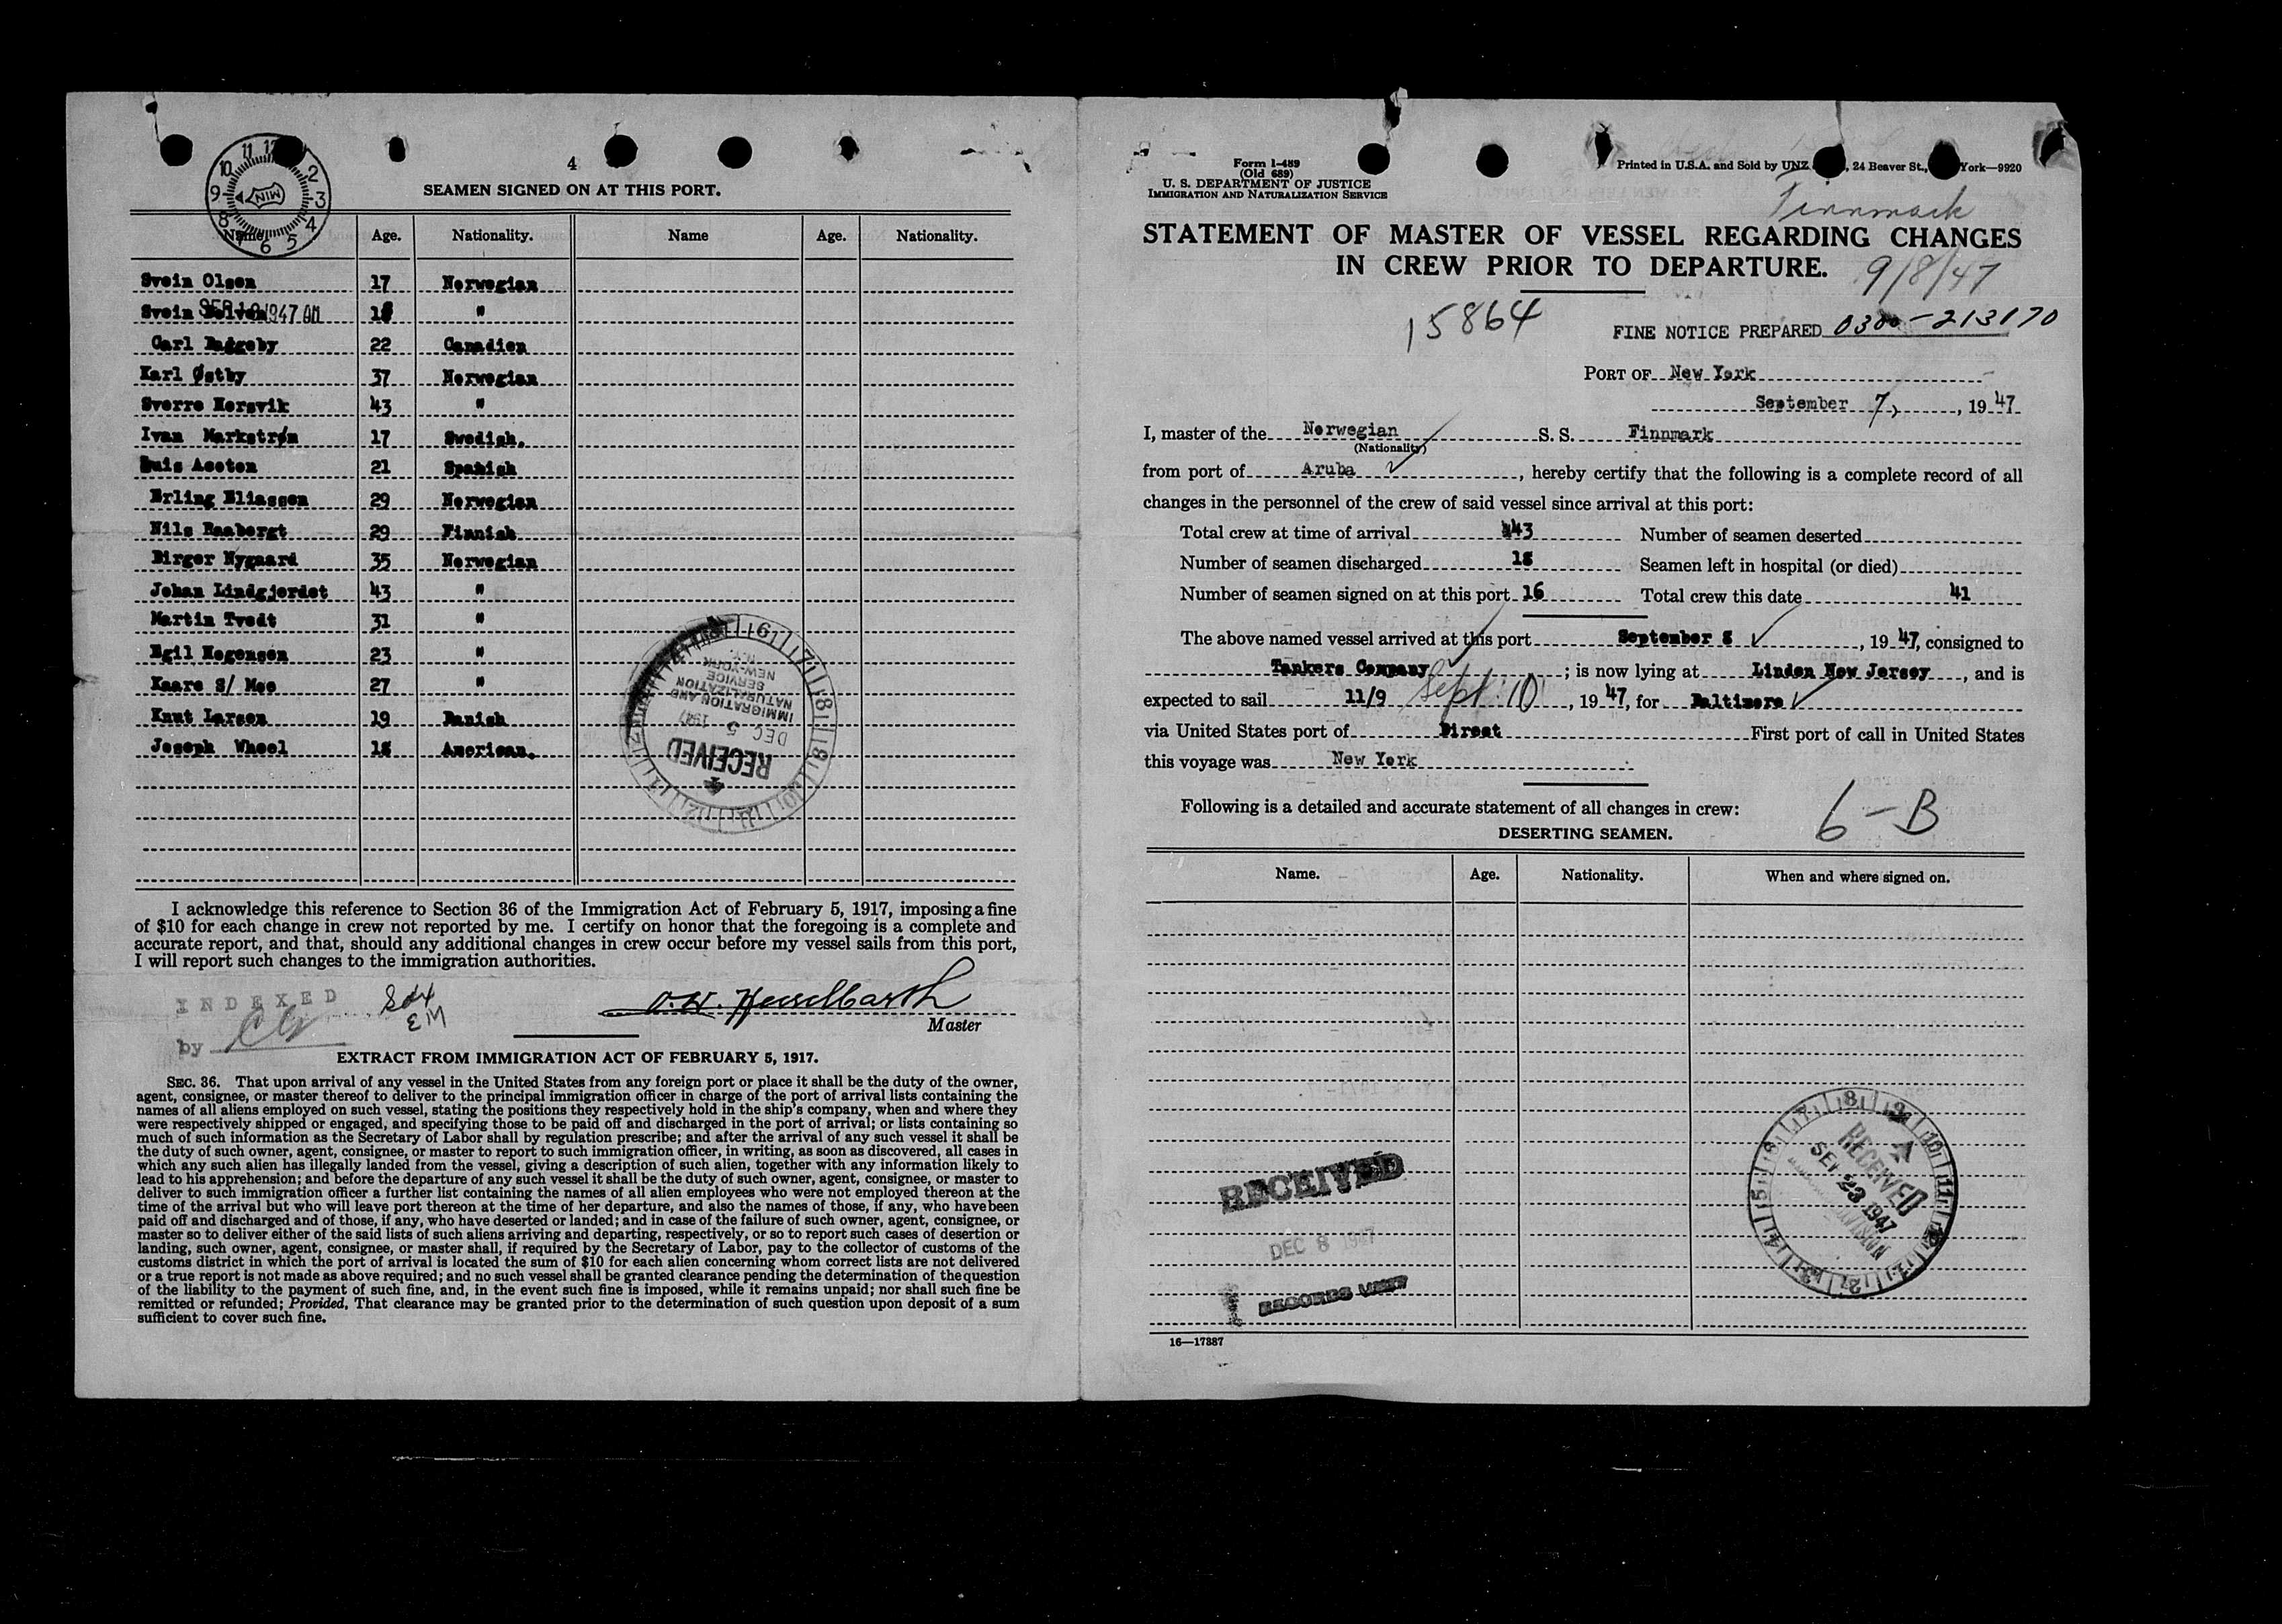 4
SEAMEN SIGNED ON AT THIS PORT.
Name Age. Nationality. Name Age. Nationality.
Svein Olsen 17 Norwegian
Svein 18 "
Carl Badgeby 22 Canadien
Karl Østby 37 Norwegian
Sverre Hersvik 43 "
Ivan Markstrøm 17 Swedish.
Luis Aceton 21 Spanish
Erling Eliassen 29 Norwegian
Nils Raabergt 29 Finnish
Birger Nygaard 35 Norwegian
Johan Lindgjerdet 43 "
Martin Tvedt 31 "
Egil Hogensen 23 "
Kaare S/ Moe 27 "
Knut Larsen 19 Danish
Joseph Wheel 18 American.
RECEIVED
DEC 5 1947
IMMIGRATION AND
NATURALIZATION
SERVICE
NEW-YORK
N.Y.
I acknowledge this reference to Section 36 of the Immigration Act of February 5, 1917, imposing a fine
of $10 for each change in crew not reported by me. I certify on honor that the foregoing is a complete and
accurate report, and that, should any additional changes in crew occur before my vessel sails from this port,
I will report such changes to the immigration authorities.
INDEXED
by
O.W. Hesselbarth
Master
EXTRACT FROM IMMIGRATION ACT OF FEBRUARY 5, 1917.
SEC. 36. That upon arrival of any vessel in the United States from any foreign port or place it shall be the duty of the owner,
agent, consignee, or master thereof to deliver to the principal immigration officer in charge of the port of arrival lists containing the
names of all aliens employed on such vessel, stating the positions they respectively hold in the ship's company, when and where they
were respectively shipped or engaged, and specifying those to be paid off and discharged in the port of arrival; or lists containing so
much of such information as the Secretary of Labor shall by regulation prescribe; and after the arrival of any such vessel it shall be
the duty of such owner, agent, consignee, or master to report to such immigration officer, in writing, as soon as discovered, all cases in
which any such alien has illegally landed from the vessel, giving a description of such alien, together with any information likely to
lead to his apprehension; and before the departure of any such vessel it shall be the duty of such owner, agent, consignee, or master to
deliver to such immigration officer a further list containing the names of all alien employees who were not employed thereon at the
time of the arrival but who will leave port thereon at the time of her departure, and also the names of those, if any, who have been
paid off and discharged and of those, if any, who have deserted or landed; and in case of the failure of such owner, agent, consignee, or
master so to deliver either of the said lists of such aliens arriving and departing, respectively, or so to report such cases of desertion or
landing, such owner, agent, consignee, or master shall, if required by the Secretary of Labor, pay to the collector of customs of the
customs district in which the port of arrival is located the sum of $10 for each alien concerning whom correct lists are not delivered
or a true report is not made as above required; and no such vessel shall be granted clearance pending the determination of the question
of the liability to the payment of such fine, and, in the event such fine is imposed, while it remains unpaid; nor shall such fine be
remitted or refunded; Provided, That clearance may be granted prior to the determination of such question upon deposit of a sum
sufficient to cover such fine.
Form I-489
(Old 689)
U. S. DEPARTMENT OF JUSTICE
IMMIGRATION AND NATURALIZATION SERVICE
Printed in U.S.A. and Sold by UNZ , 24 Beaver St., York—9920
Finnmark
STATEMENT OF MASTER OF VESSEL REGARDING CHANGES
IN CREW PRIOR TO DEPARTURE.
9/8/47
15864
FINE NOTICE PREPARED 0300-213170
PORT OF New York
September 7, 1947
I, master of the Norwegian S. S. Finnmark
(Nationality)
from port of Aruba, hereby certify that the following is a complete record of all
changes in the personnel of the crew of said vessel since arrival at this port:
Total crew at time of arrival 43 Number of seamen deserted
Number of seamen discharged 18 Seamen left in hospital (or died)
Number of seamen signed on at this port 16 Total crew this date 41
The above named vessel arrived at this port September 8, 1947, consigned to
Tankers Company; is now lying at Linden New Jersey, and is
expected to sail 11/9 Sept. 10, 1947, for Baltimore
via United States port of Direct First port of call in United States
this voyage was New York
Following is a detailed and accurate statement of all changes in crew:
6-B
DESERTING SEAMEN.
Name. Age. Nationality. When and where signed on.
RECEIVED
DEC 8 1947
RECORDS UNIT
RECEIVED
SEP 23 1947
16—17887